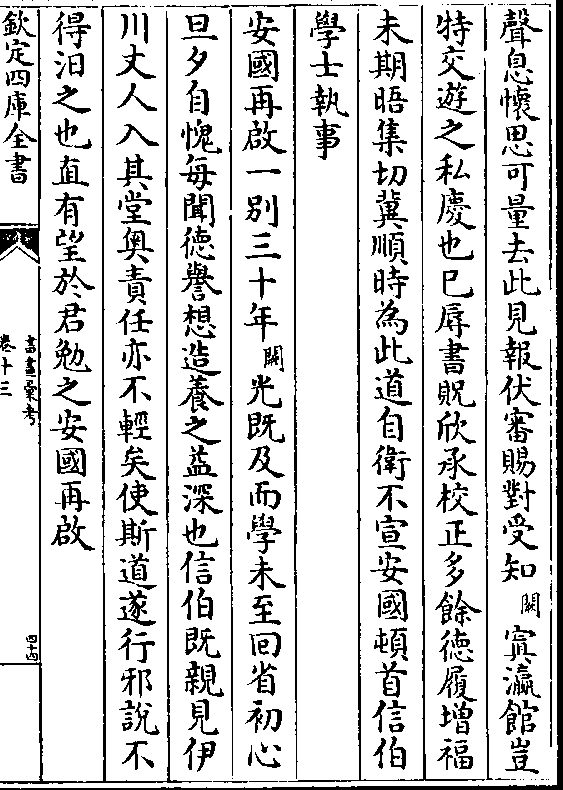 聲息懷思可量去此見報伏審賜對受知闕寘瀛館豈
特交遊之私慶也已辱書貺欣承校正多餘德履增福
未期晤集切冀順時為此道自衛不宣安國頓首信伯
學士執事
安國再啟一別三十年闕光既及而學未至回省初心
旦夕自愧每聞德譽想造養之益深也信伯既親見伊
川丈人入其堂奧責任亦不輕矣使斯道遂行邪說不
得汨之也直有望於君勉之安國再啟
欽定四庫全書
書畫彙考
卷十三
四十四